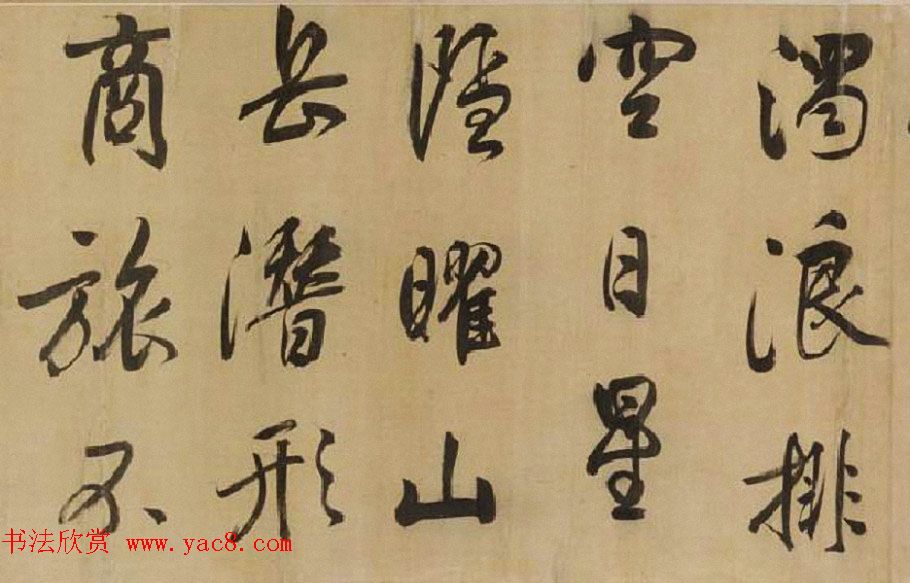 濁浪排
空日星
隱曜山
岳潛形
商旅不
书法欣赏 www.yac8.com